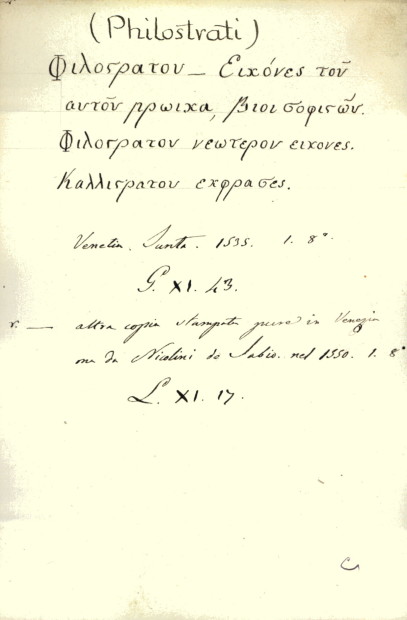 (Philostrati)
Φιλοςρατου — Εικόνες τοῦ
αυτοῦ ηρωικα, Βιοι σοφιςῶν.
Φιλοςρατου νεωτερου εικονες.
Καλλιςρατου εκφρασες.
Venetia. Junta. 1535. 1. 8°.
G. XI. 43.
r. — altra copia stampata pure in Venezia
ma da Nicolini de Sabio. nel 1550. 1. 8°
L. XI. 17.
C